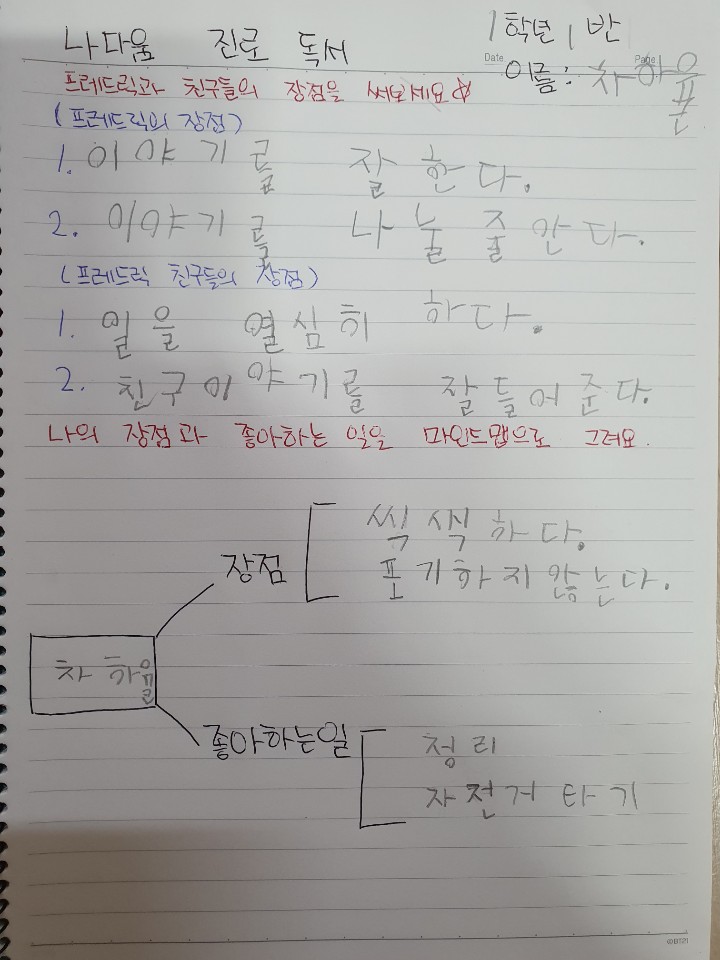 나다움 진로 독서
1학년 1반
Date Page
이름: 차하율
프레드릭과 친구들의 장점을 써보세요☆
(프레드릭의 장점)
1. 이야기를 잘 한다.
2. 이야기를 나눌 줄 안다.
(프레드릭 친구들의 장점)
1. 일을 열심히 하다.
2. 친구이야기를 잘들어준다.
나의 장점과 좋아하는 일을 마인드맵으로 그려요.
장점
씩식하다.
포기하지않는다.
차하율
좋아하는일
정리
자전거 타기